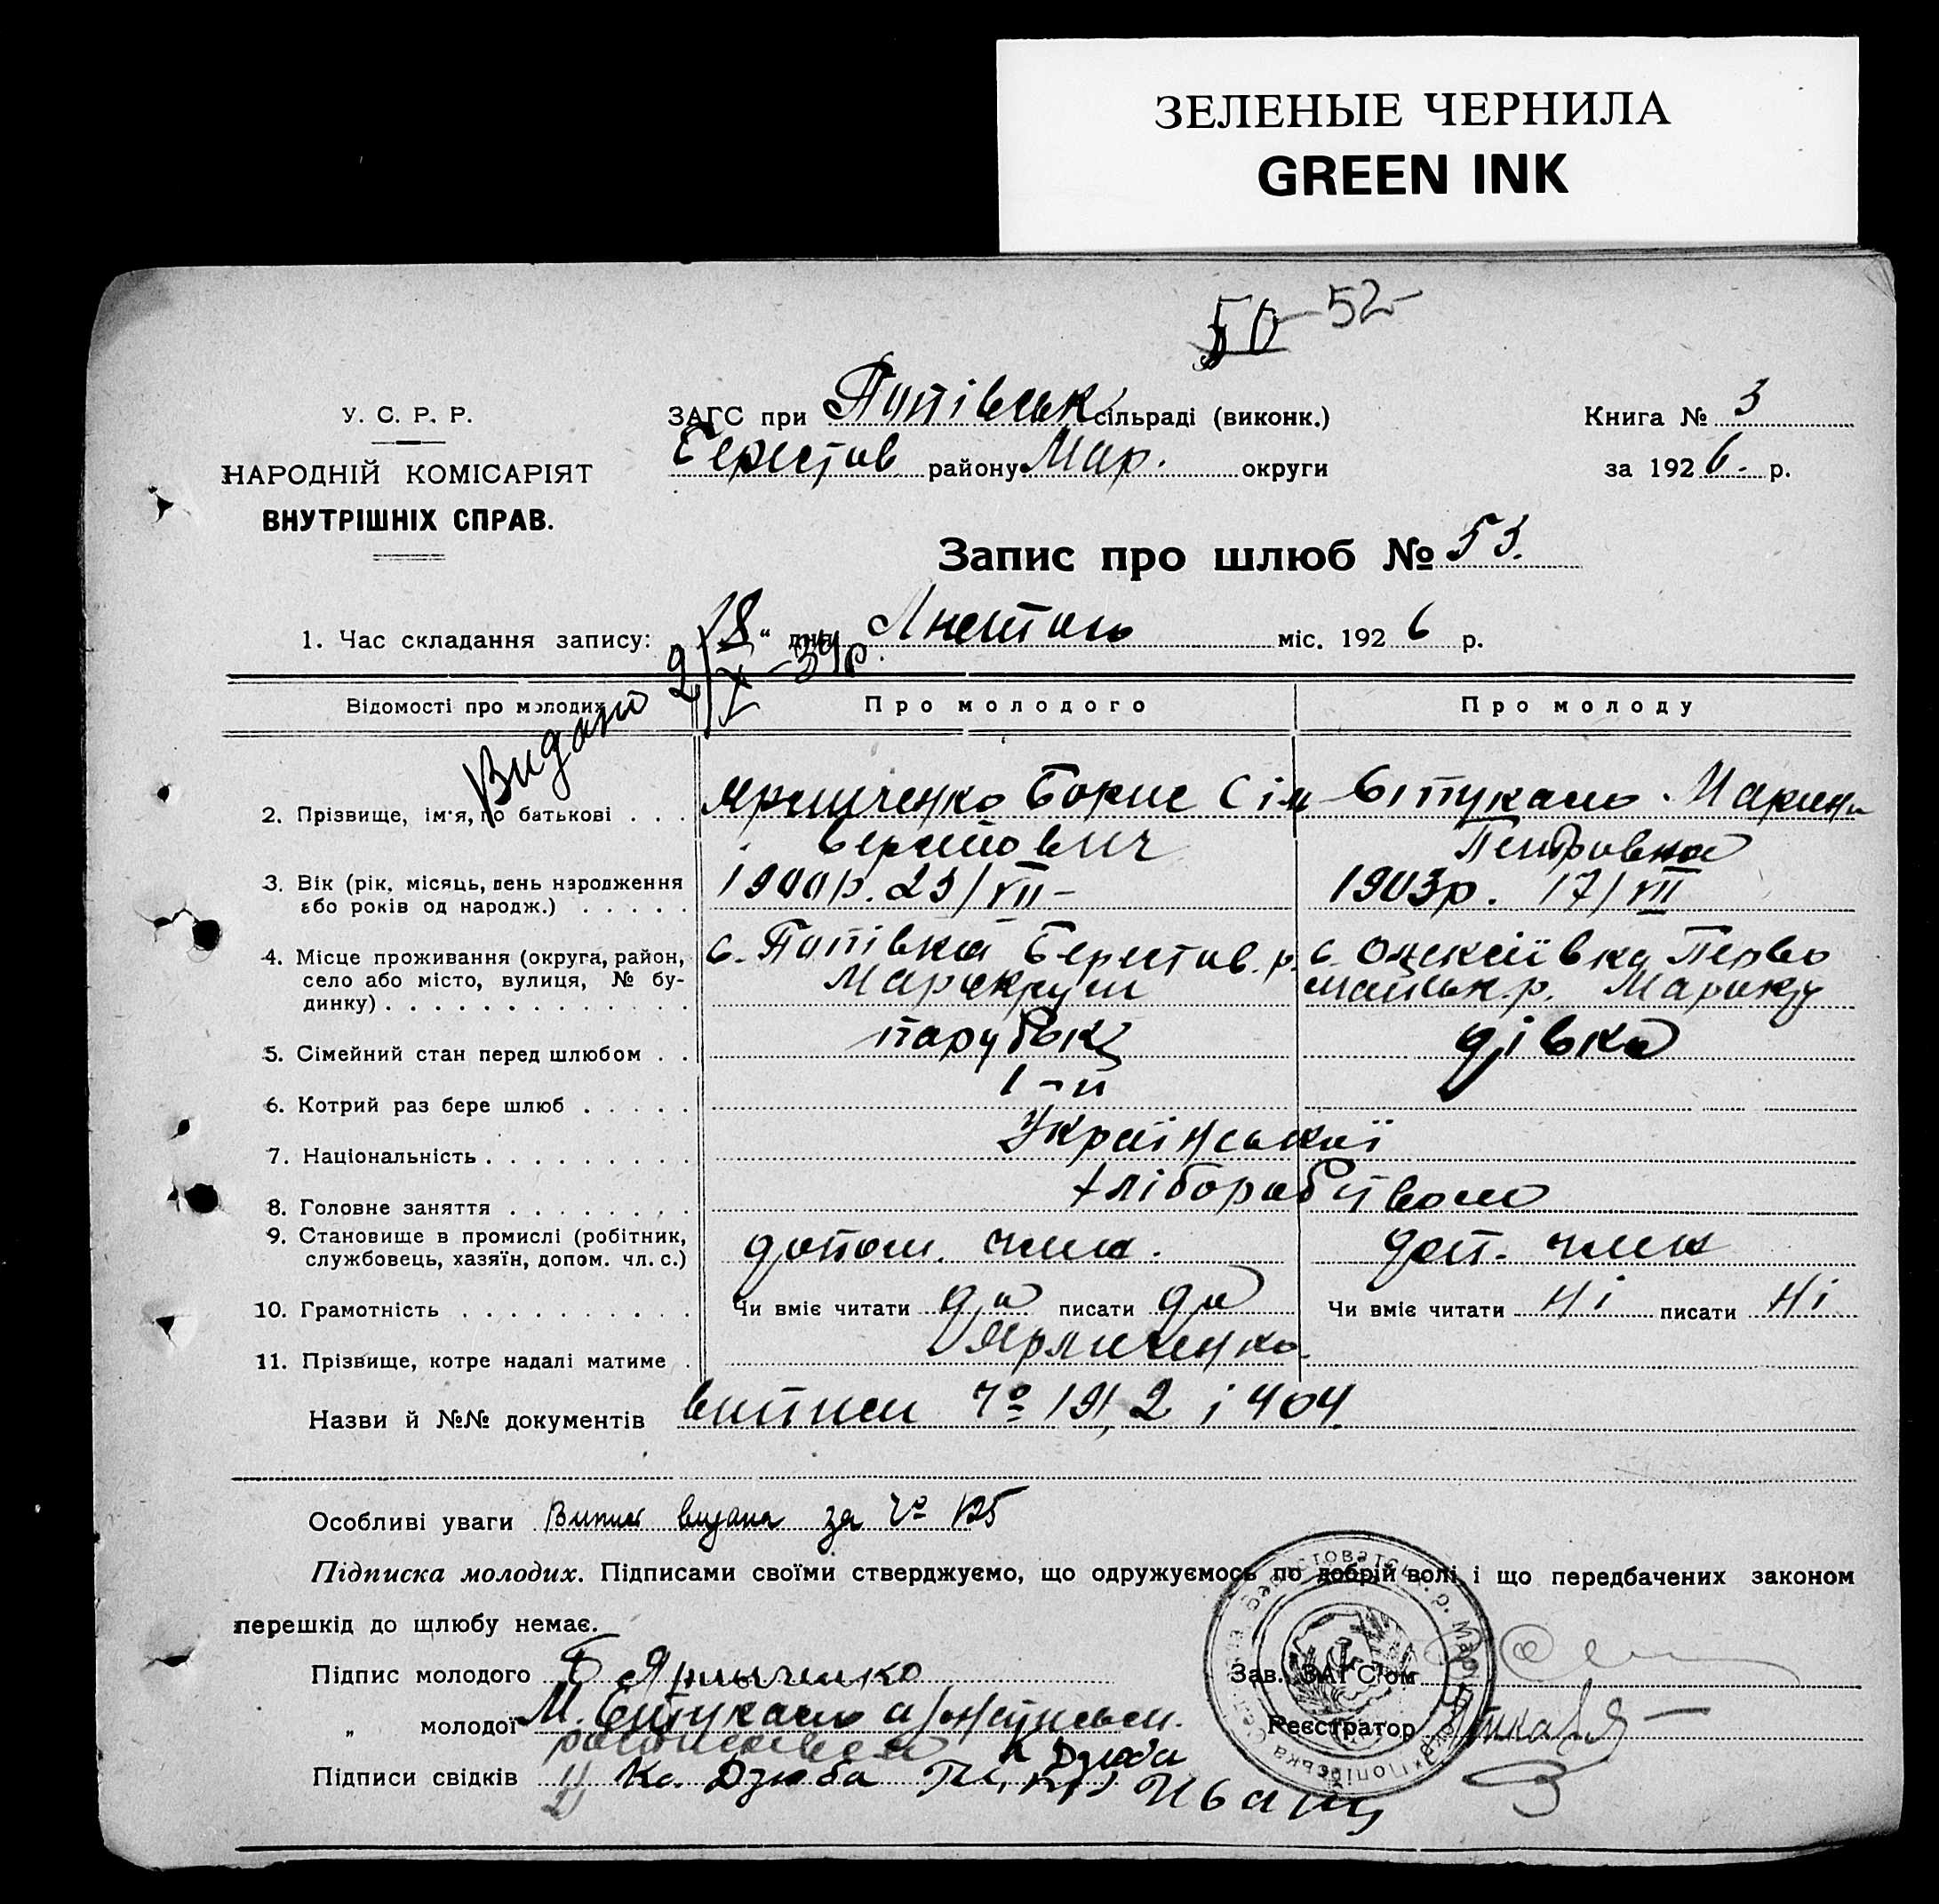 ЗЕЛЕНЫЕ ЧЕРНИЛА
GREEN INK
50 - 52
У. С. Р. Р.
НАРОДНІЙ КОМІСАРІЯТ
ВНУТРІШНІХ СПРАВ.
ЗАГС при Попівськ сільраді (виконк.)
Берестов району Мар. округи
Книга № 3
за 1926. р.
Запис про шлюб № 53.
1. Час складання запису: 18 " дня Листопь міс. 1926 р.
Видано 9/X - 34р.
Відомості про молодих
Про молодого
Про молоду
2. Прізвище, ім'я, по батькові . . . Борис Сіл Марина
Петровна
3. Вік (рік, місяць, день народження
або років од народж.) . . . . . 1900р. 23/VII - 1903р. 17/VII
4. Місце проживання (округа, район,
село або місто, вулиця, № бу-
динку) . . . . . . . . . . . . .
с. Попівка Берестов. р.
Марокруги
с. Олексіївка Перво
майськ. р. Марокр
5. Сімейний стан перед шлюбом . . парубок дівка
6. Котрий раз бере шлюб . . . . . 1-й
7. Національність . . . . . . . . . Української
8. Головне заняття . . . . . . . . хліборобством
9. Становище в промислі (робітник,
службовець, хазяїн, допом. чл. с.) допом. член. доп. член
10. Грамотність . . . . . . . . . . Чи вміє читати да писати да Чи вміє читати ні писати ні
11. Прізвище, котре надалі матиме .
Назви й №№ документів виписи № 1912 і 404
Особливі уваги Випис видана за № 125
Підписка молодих. Підписами своїми стверджуємо, що одружуємось по добрій волі і що передбачених законом
перешкід до шлюбу немає.
Підпис молодого Б
Зав. ЗАГС'ом
" молодої М.
Реєстратор
Підписи свідків 1) К. Дзюба К Дзюба
2) Іванц